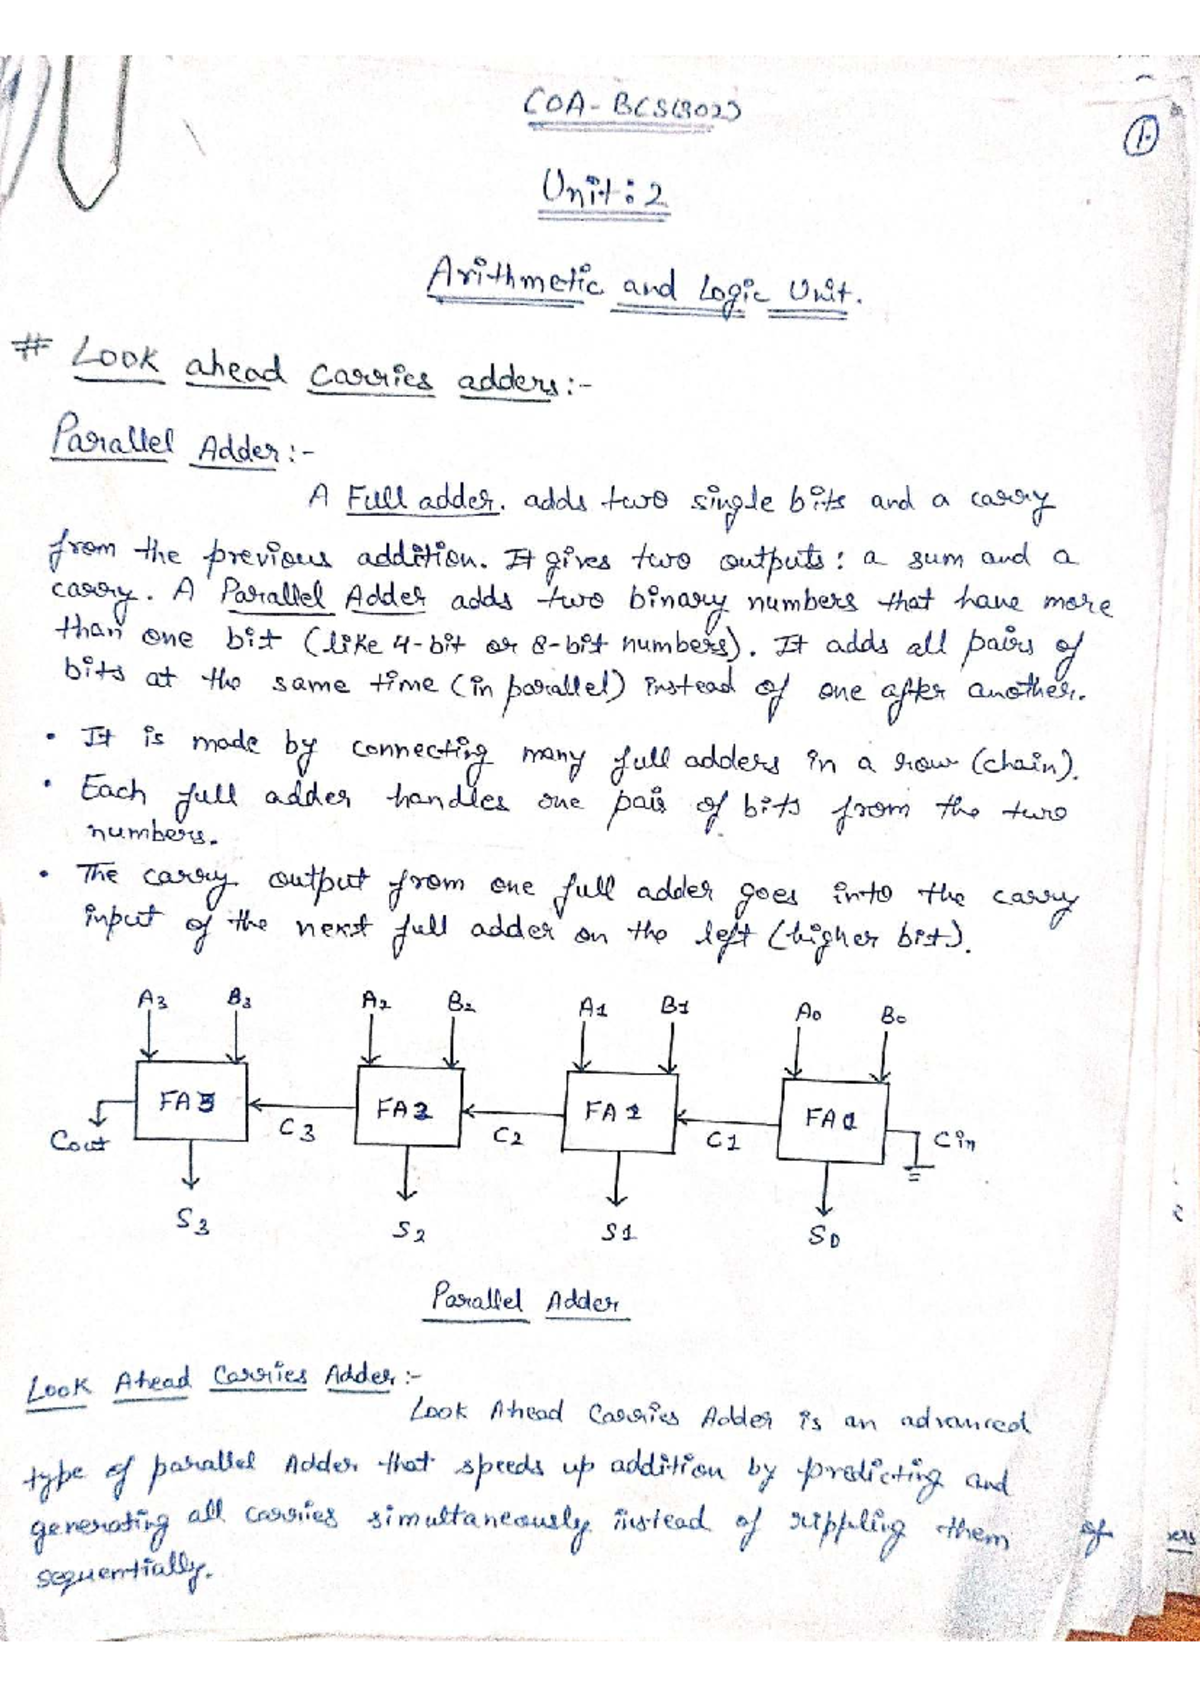 COA - BCS(302)
1.
Unit: 2
Arithmetic and Logic Unit.
# Look ahead carries adders:-
Parallel Adder:-
A Full adder. adds two single bits and a carry
from the previous addition. It gives two outputs: a sum and a
carry. A Parallel Adder adds two binary numbers that have more
than one bit (like 4-bit or 8-bit numbers). It adds all pairs of
bits at the same time (in parallel) instead of one after another.
• It is made by connecting many full adders in a row (chain).
• Each full adder handles one pair of bits from the two
numbers.
• The carry output from one full adder goes into the carry
input of the next full adder on the left (higher bit).
A3 B3 A2 B2 A1 B1 A0 B0
FA3 FA2 FA1 FA0
Cout C3 C2 C1 Cin
S3 S2 S1 S0
Parallel Adder
Look Ahead Carries Adder:-
Look Ahead Carries Adder is an advanced
type of parallel Adder that speeds up addition by predicting and
generating all carries simultaneously instead of rippling them
sequentially.
of